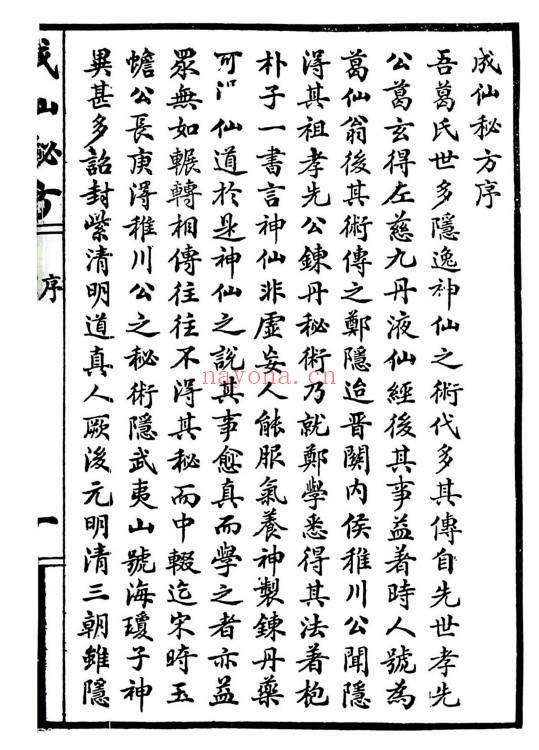 成仙秘方序
吾葛氏世多隱逸神仙之術代多其傳自先世孝先
公葛玄得左慈九丹液仙經後其事益著時人號為
葛仙翁後其術傳之鄭隱迨晉關內侯稚川公聞隱
得其祖孝先公鍊丹秘術乃就鄭學悉得其法著枹
朴子一書言神仙非虛妄人能服氣養神製鍊丹藥
可 仙道於是神仙之說其事愈真而學之者亦益
眾無如輾轉相傳往往不得其秘而中輟迄宋時玉
蟾公長庚得稚川公之秘術隱武夷山號海瓊子神
異甚多詔封紫清明道真人厥後元明清三朝雖隱
成仙秘方
序
一
nayona.cn